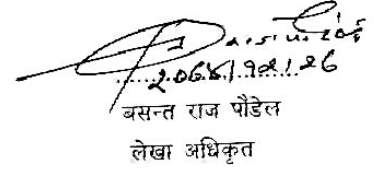 २०६४।१२।२६
बसन्त राज पौडेल
लेखा अधिकृत